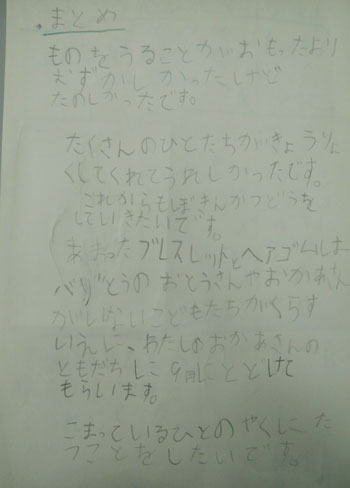 ・まとめ
ものをうることがおもったより
むずかしかったけど
たのしかったです。
たくさんのひとたちがきょうりょ
くしてくれてうれしかったです。
これからもぼきんかつどうを
していきたいです。
あまったブレスレットとヘアゴムは
の おとうさんやおかあさん
がいないこどもたちがくらす
いえに、わたしのおかあさんの
ともだちに9月にとどけて
もらいます。
こまっているひとのやくにた
つことをしたいです。